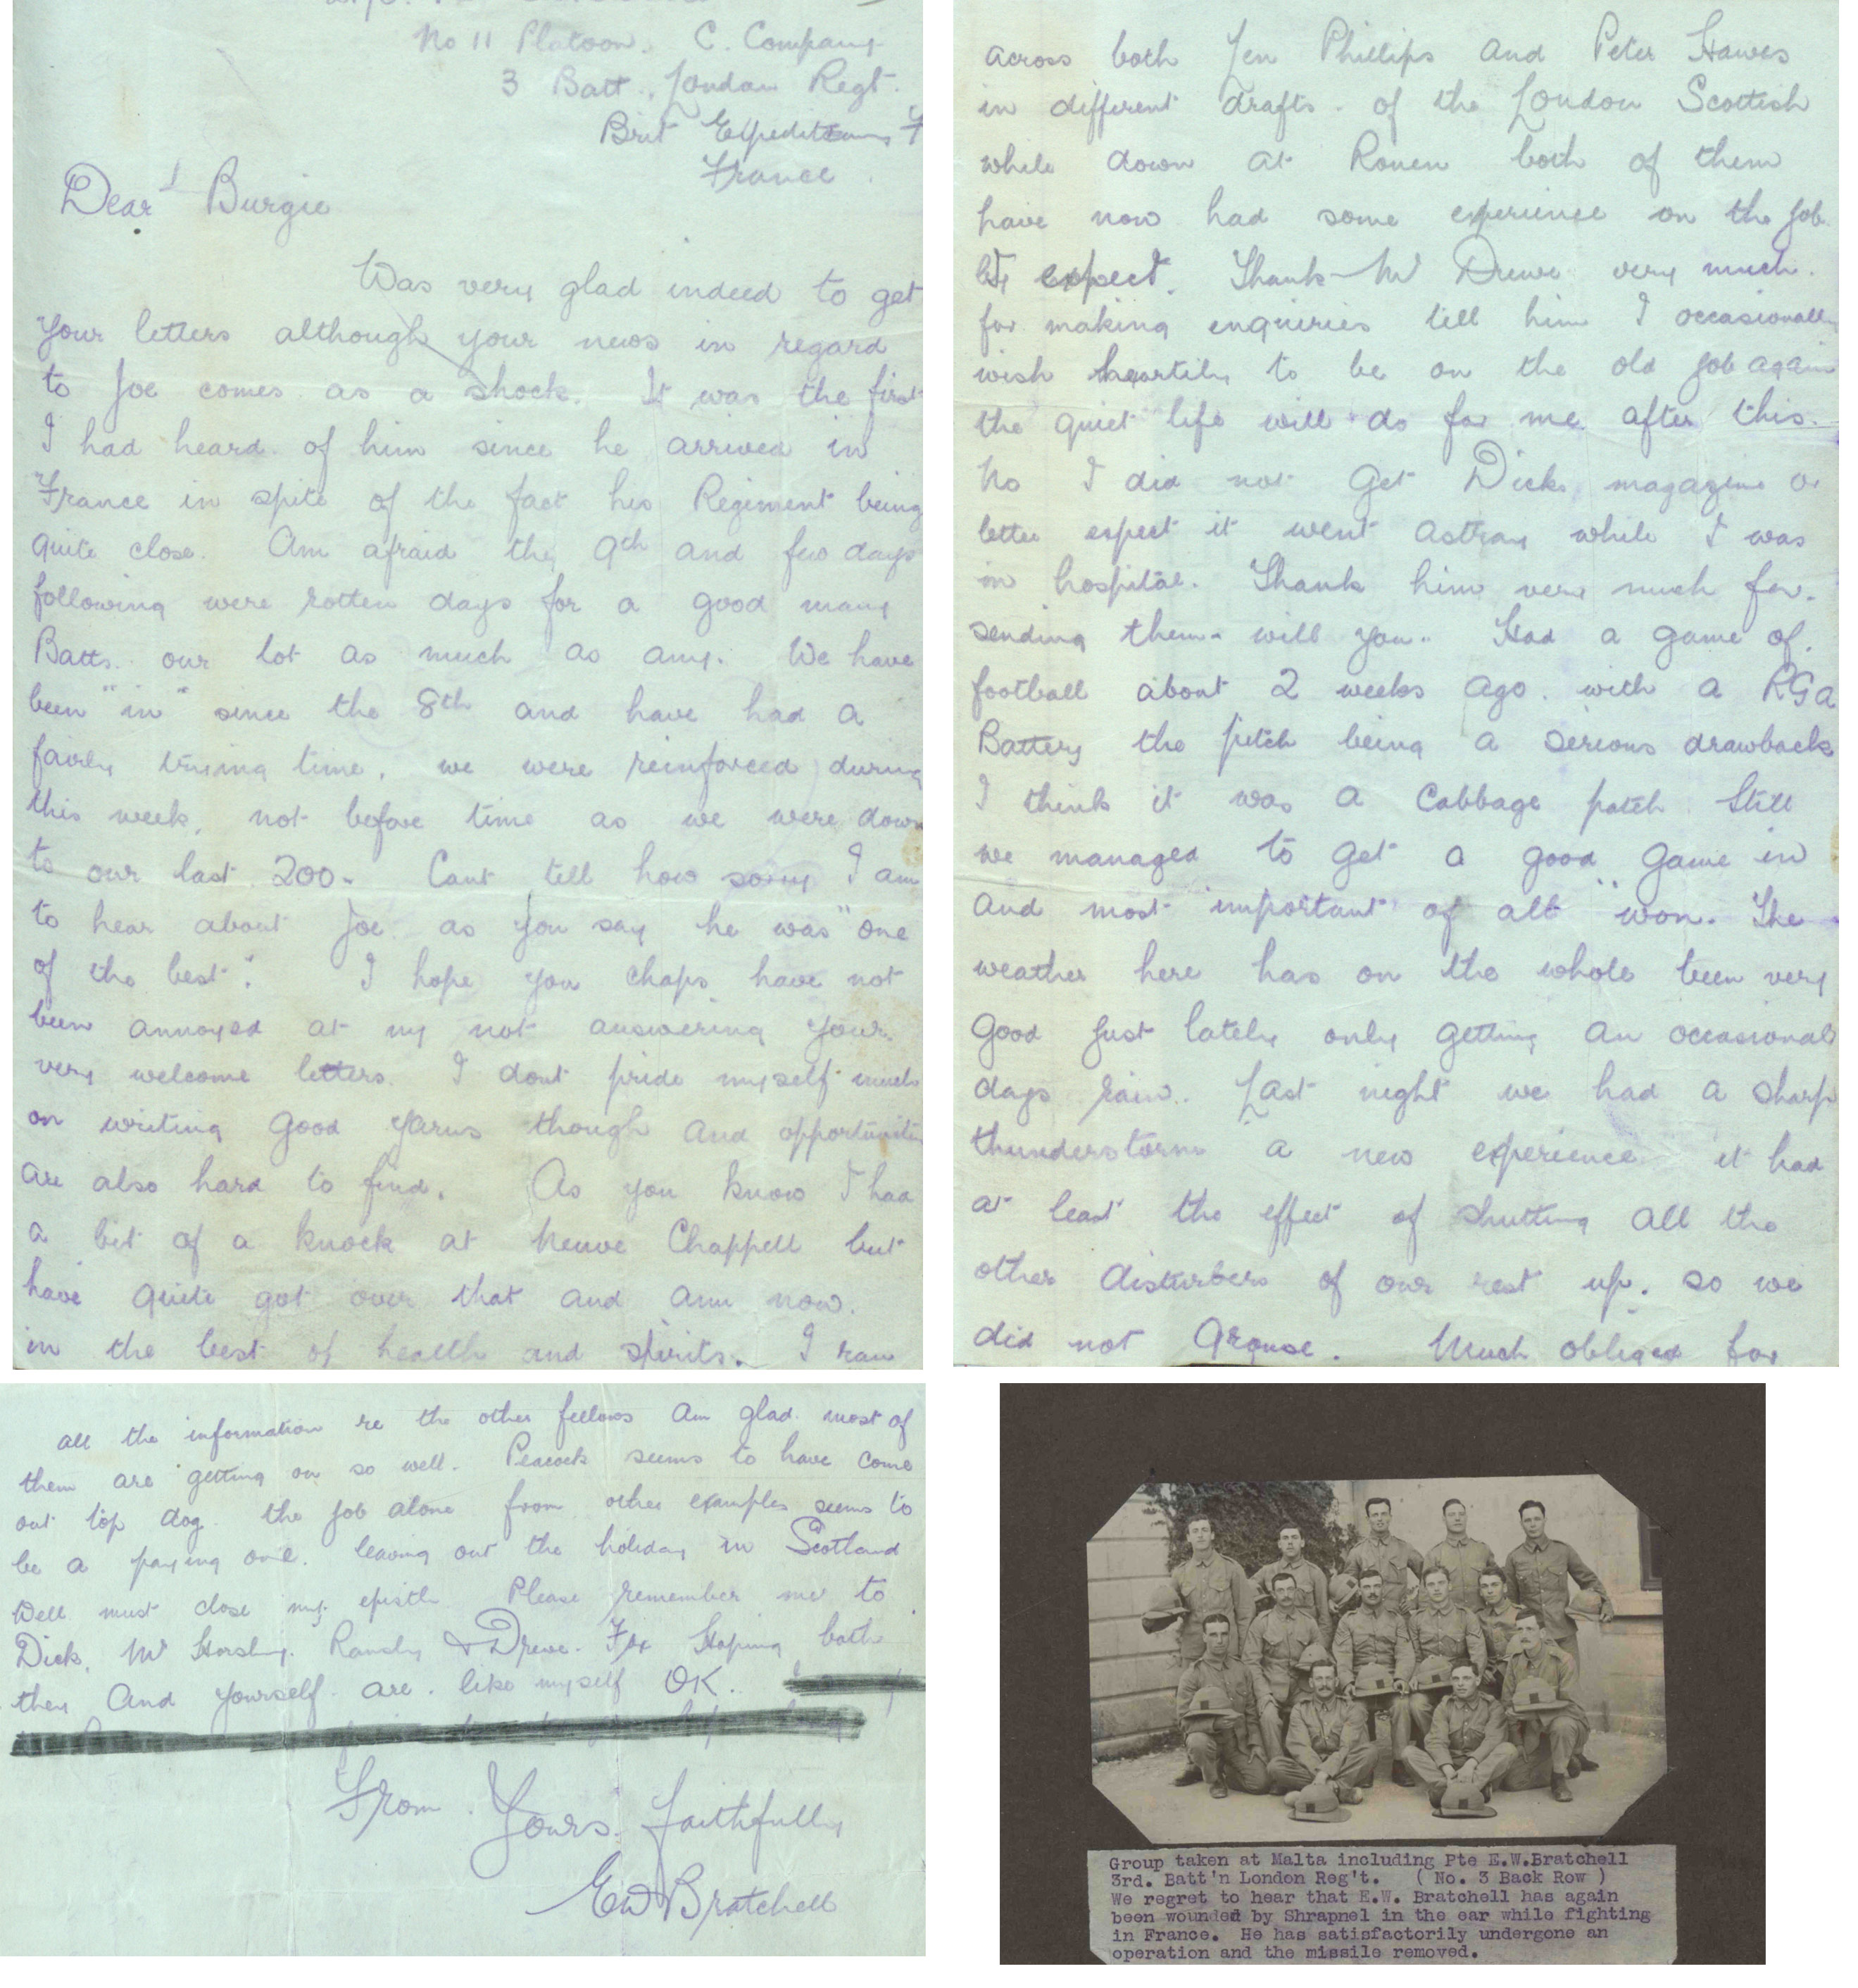 No 11 Platoon. C. Company
3 Batt., London Regt.
Brit Expeditionary F
France.
Dear Burgie
Was very glad indeed to get
your letters although your news in regard
to Joe comes as a shock. It was the first
I had heard of him since he arrived in
France in spite of the fact his Regiment being
quite close. Am afraid the 9th and few days
following were rotten days for a good many
Batts. our lot as much as any. We have
been "in" since the 8th and have had a
fairly trying time, we were reinforced during
this week, not before time as we were down
to our last 200. Cant tell how sorry I am
to hear about Joe. as you say he was "one
of the best". I hope you chaps have not
been annoyed at my not answering your
very welcome letters. I dont pride myself much
on writing good yarns though and opportunities
are also hard to find. As you know I had
a bit of a knock at Neuve Chappell but
have quite got over that and am now.
in the best of health and spirits. I ran
across both Len Phillips and Peter Hawes
in different drafts. of the London Scottish
while down at Rouen both of them
have now had some experience on the job
expect. Thank Mr Drewe very much.
for making enquiries tell him I occasionally
wish heartily to be on the old job again
the quiet life will do for me after this.
No I did not get Dicks magazine or
letter expect it went astray while I was
in hospital. Thank him very much for.
sending them. will you. Had a game of.
football about 2 weeks ago. with a RGA
Battery the pitch being a serious drawback
I think it was a cabbage patch. Still
we managed to get a good game in
and most "important of all" won. The
weather here has on the whole been very
good just lately only getting an occasional
days rain. Last night we had a sharp
thunderstorm a new experience it had
at least the effect of shutting all the
other disturbers of our rest up. so we
did not grouse. Much obliged for
all the information re the other fellows am glad most of
them are getting on so well. Peacock seems to have come
out top dog. the job alone from other examples seems to
be a paying one. leaving out the holiday in Scotland
Well must close my epistle Please remember me to
Dick, Mr Horsley. & Drewe. Fox Hoping both
they and yourself are. like myself OK.
From Yours faithfully
EW Bratchell
Group taken at Malta including Pte E.W.Bratchell
3rd. Batt'n London Reg't. ( No. 3 Back Row )
We regret to hear that E.W. Bratchell has again
been wounded by Shrapnel in the ear while fighting
in France. He has satisfactorily undergone an
operation and the missile removed.